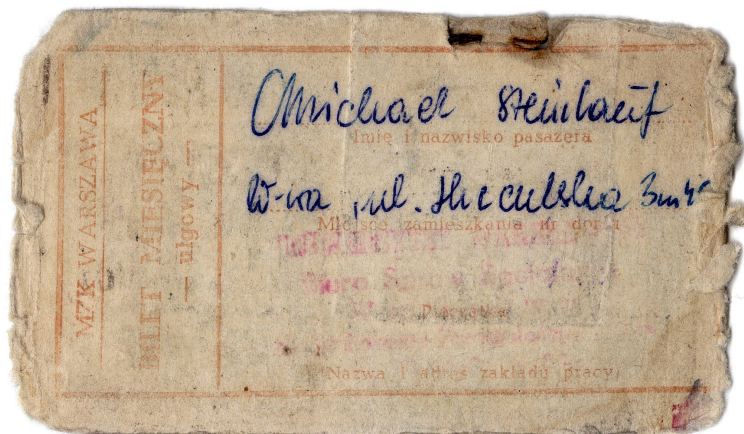 MZK WARSZAWA
BILET MIESIĘCZNY
— ulgowy —
Michael Steinlauf
Imię i nazwisko pasażera
W-wa, ul. Huculska 3 m 4
Miejsce zamieszkania nr domu
Biuro
Pieczątka
(Nazwa i adres zakładu pracy)